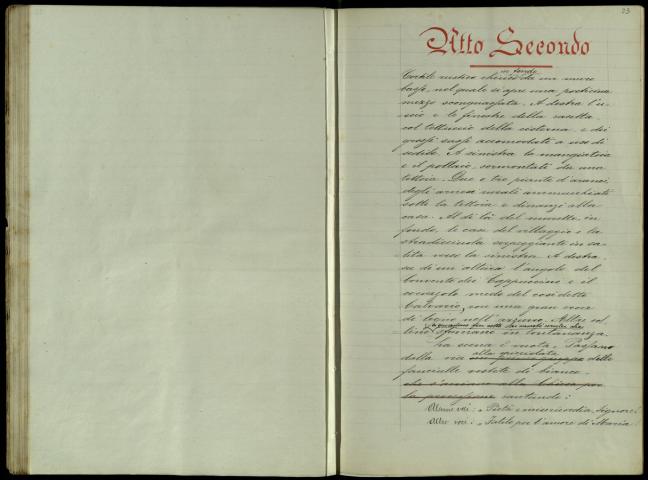 23
Atto Secondo
in fondo
Cortile rustico chiuso da un muro
basso, nel quale si apre una porticina
mezzo sconquassata. A destra l'u-
scio e le finestre della casetta,
col tettuccio della cisterna, e dei
grossi sassi accomodati a uso di
sedile. A sinistra la mangiatoia
e il pollaio, sormontati da una
tettoia. Due o tre piante d'aranci
degli arnesi rurali ammucchiati
sotto la tettoia e dinanzi alla
casa. Al di là del muretto in
fondo, le case del villaggio e la
stradicciuola serpeggiante in sa-
lita verso la sinistra. A destra,
su di un'altura l'angolo del
Convento dei Cappuccini e il
cocuzzolo nudo del così detto
Calvario, con una gran croce
di legno nell'azzurro. Altre col-
line sfumano in lontananza.
La scena è vuota. Passano
alla spicciolata
dalla via delle
fanciulle vestite di bianco,
che s'avviano alla Chiesa per
la processione cantando:
Alcune voci: - Pietà e misericordia, Signore!
Altre voci: - Fatelo per l'amore di Maria!